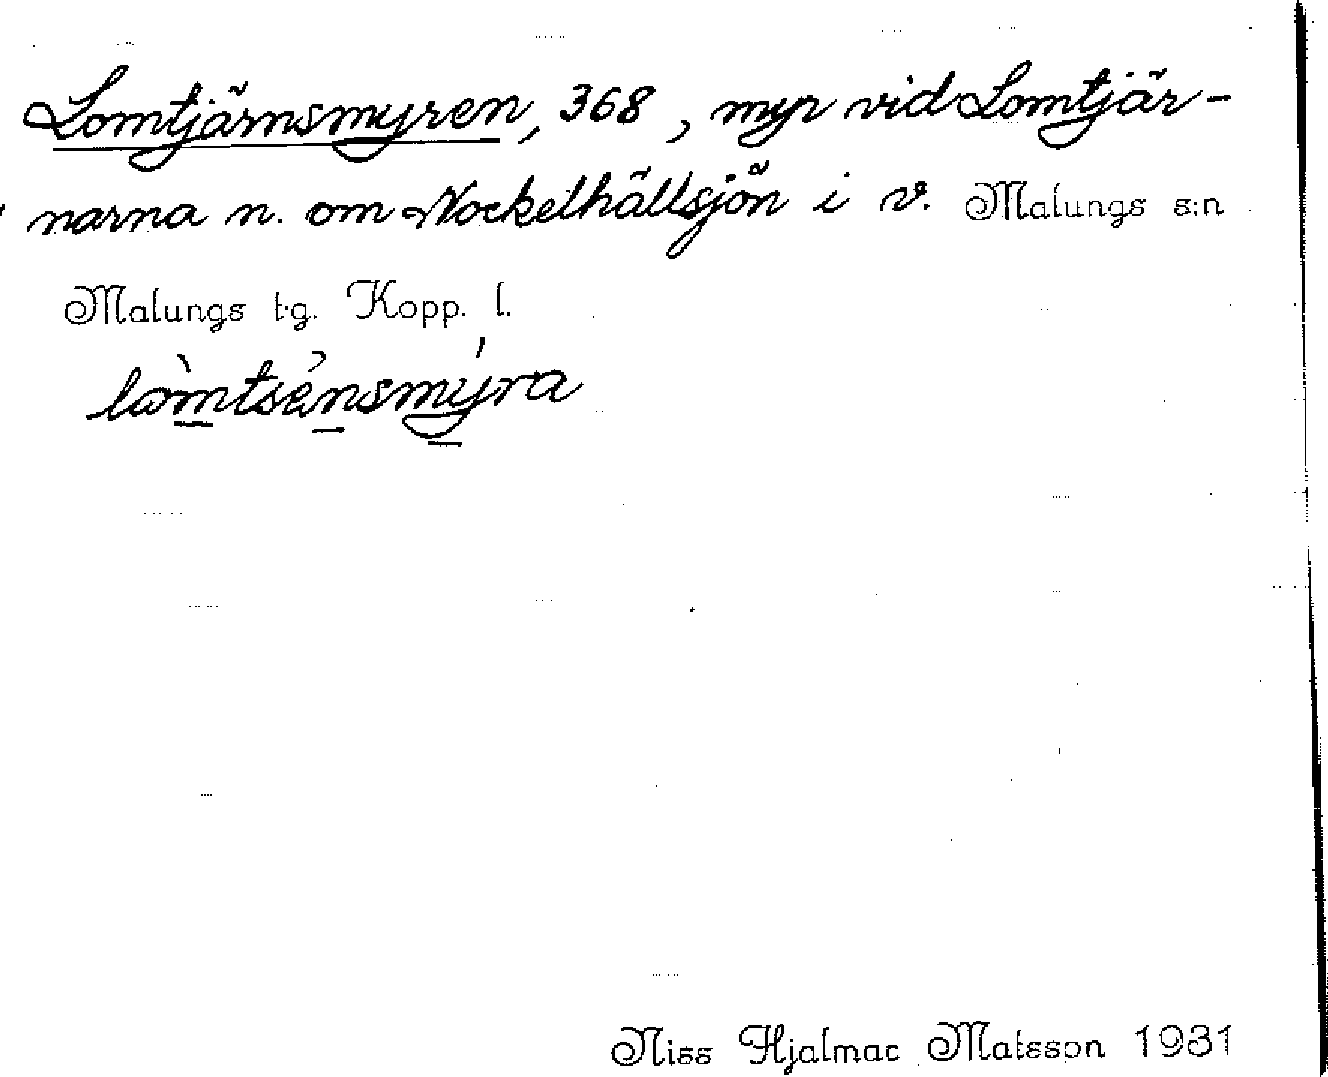 Lomtjärnsmyren, 368, myr vid Lomtjär-
narna n. om Nockelhällsjön i v. Malungs s:n
Malungs tg. Kopp. l.
Niss Hjalmar Matsson 1931